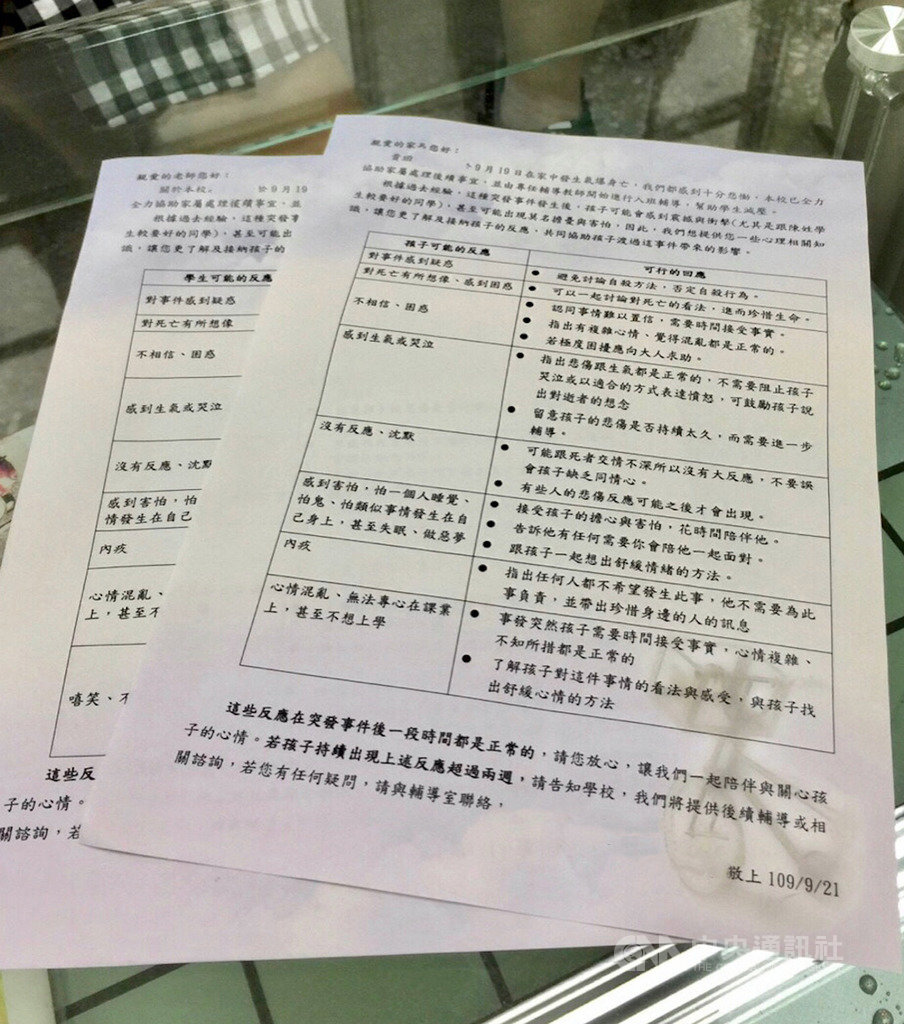 親愛的老師您好：
關於本校 於9月19
全力協助家屬處理後續事宜、並
根據過去經驗，這種突發事
生較要好的同學)，甚至可能出
識，讓您更了解及接納孩子的
學生可能的反應
對事件感到疑惑
對死亡有所想像
不相信、困惑
感到生氣或哭泣
沒有反應、沈默
感到害怕，怕
情發生在自己
內疚
心情混亂、
上，甚至不
嘻笑、不
這些反
子的心情。
關諮詢，若
親愛的家長您好：
貴班
9月19日在家中發生氣爆身亡，我們都感到十分悲慟，本校已全力
協助家屬處理後續事宜、並由專任輔導教師開始進行入班輔導，幫助學生減壓。
根據過去經驗，這種突發事件發生後，孩子可能會感到震撼與衝擊(尤其是跟陳姓學
生較要好的同學)，甚至可能出現莫名擔憂與害怕，因此，我們想提供您一些心理相關知
識，讓您更了解及接納孩子的反應，共同協助孩子渡過這事件帶來的影響。
孩子可能的反應 可行的回應
對事件感到疑惑
● 避免討論自殺方法，否定自殺行為。
對死亡有所想像、感到困惑
● 可以一起討論對死亡的看法，進而珍惜生命。
不相信、困惑
● 認同事情難以置信，需要時間接受事實。
● 指出有複雜心情、覺得混亂都是正常的。
● 若極度困擾應向大人求助。
感到生氣或哭泣
● 指出悲傷跟生氣都是正常的，不需要阻止孩子
哭泣或以適合的方式表達憤怒，可鼓勵孩子說
出對逝者的想念
● 留意孩子的悲傷是否持續太久，而需要進一步
輔導。
沒有反應、沈默
● 可能跟死者交情不深所以沒有大反應，不要誤
會孩子缺乏同情心。
● 有些人的悲傷反應可能之後才會出現。
感到害怕，怕一個人睡覺、
怕鬼、怕類似事情發生在自
己身上，甚至失眠、做惡夢
● 接受孩子的擔心與害怕，花時間陪伴他。
● 告訴他有任何需要你會陪他一起面對。
● 跟孩子一起想出舒緩情緒的方法。
內疚
● 指出任何人都不希望發生此事，他不需要為此
事負責，並帶出珍惜身邊的人的訊息
心情混亂、無法專心在課業
上，甚至不想上學
● 事發突然孩子需要時間接受事實，心情複雜、
不知所措都是正常的
● 了解孩子對這件事情的看法與感受，與孩子找
出舒緩心情的方法
這些反應在突發事件後一段時間都是正常的，請您放心，讓我們一起陪伴與關心孩
子的心情。若孩子持續出現上述反應超過兩週，請告知學校，我們將提供後續輔導或相
關諮詢，若您有任何疑問，請與輔導室聯絡，
敬上 109/9/21
CNA 中央通訊社